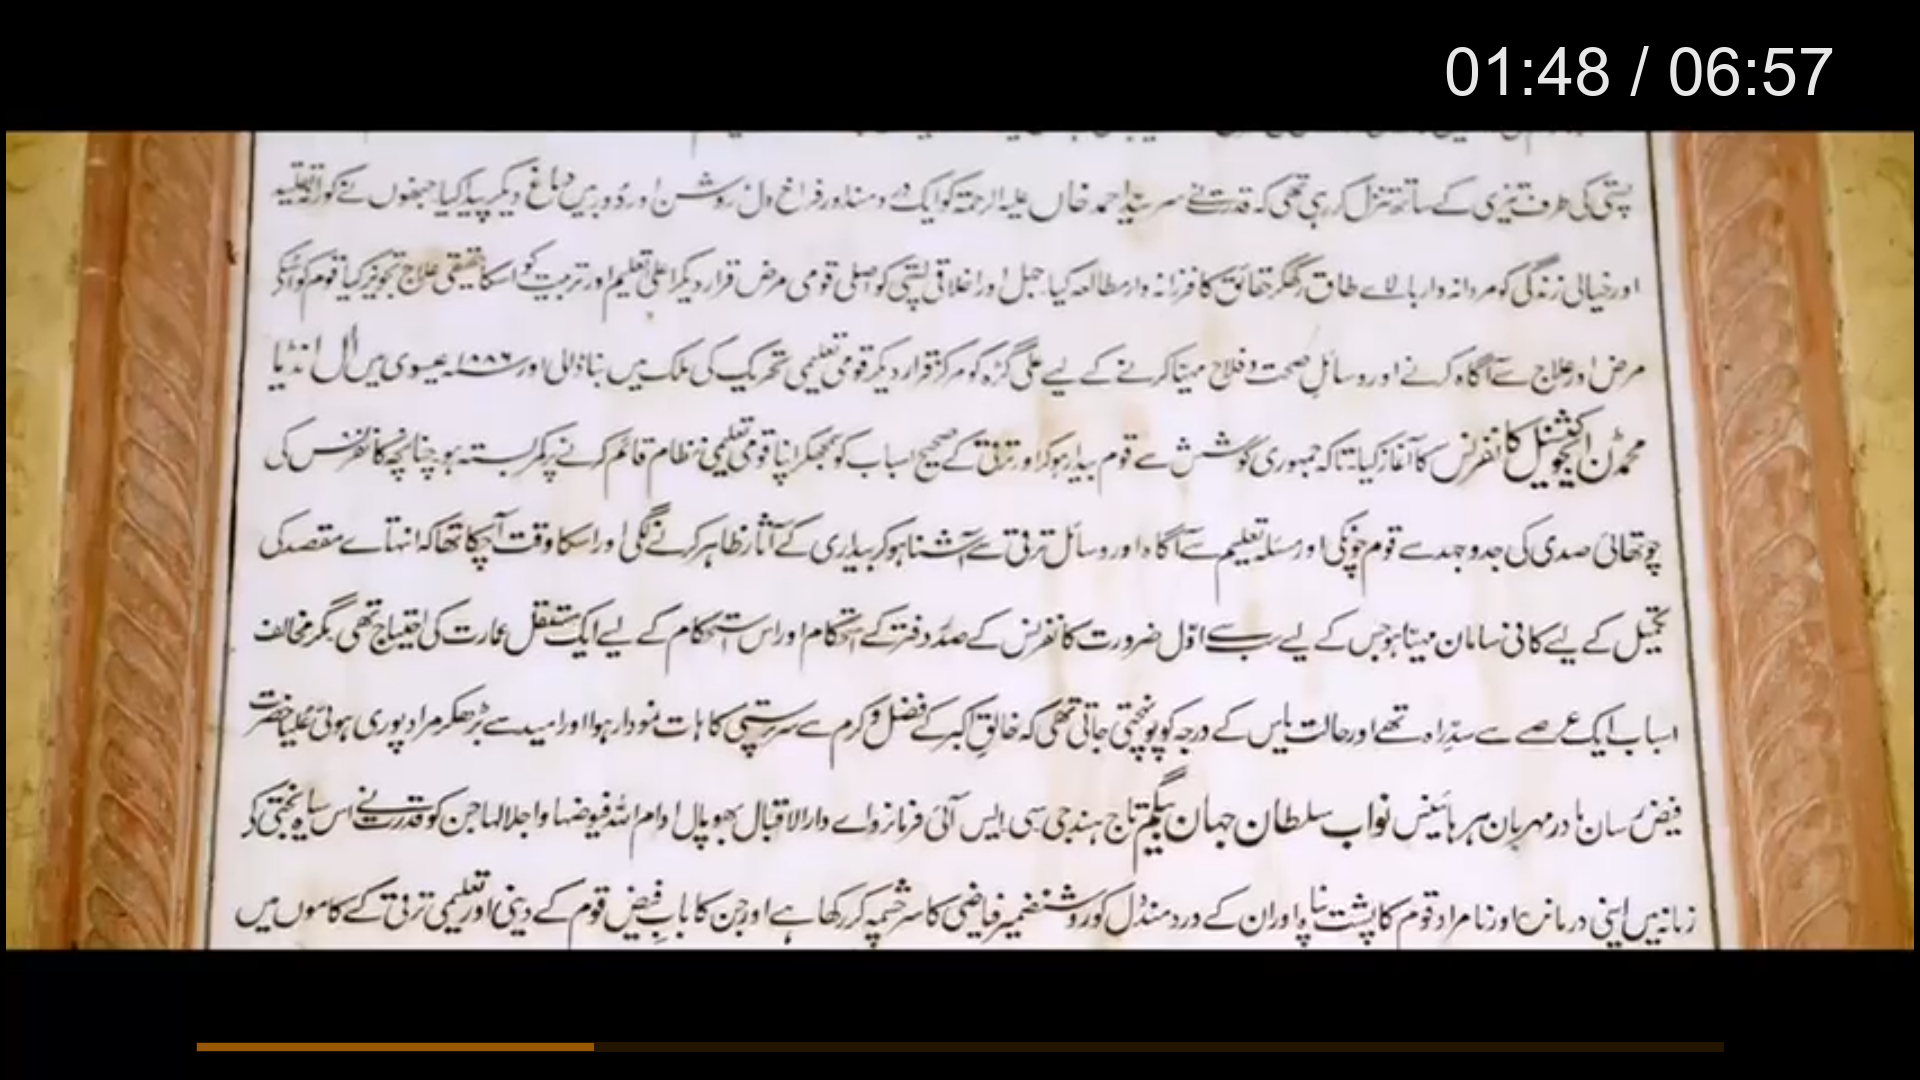 01:48 / 06:57
پستی کی طرف تیزی کے ساتھ تنزل کر رہی تھی کہ قدرت نے سرسید احمد خاں علیہ الرحمۃ کو ایک درد مند اور فراخ دل روشن اور دوربیں دماغ دیکر پیدا کیا جنھوں نے کورانہ تقلید
اور خیالی زندگی کو مردانہ وار بالاے طاق رکھکر حقائق کا فرزانہ وار مطالعہ کیا جہل اور اخلاقی پستی کو اصلی قومی مرض قرار دیکر اعلیٰ تعلیم اور تربیت کو اسکا حقیقی علاج تجویز کیا قوم کو اسکے
مرض اور علاج سے آگاہ کرنے اور وسائل صحت و فلاح مہیا کرنے کے لیے علی گڑہ کو مرکز قرار دیکر قومی تعلیمی تحریک کی ملک میں بنا ڈالی اور ۱۸۸۶ عیسوی میں آل انڈیا
محمڈن ایجوکیشنل کانفرنس کا آغاز کیا تاکہ جمہوری کوشش سے قوم بیدار ہوکر اور ترقی کے صحیح اسباب کو سمجھکر اپنا قومی تعلیمی نظام قائم کرنے پر کمر بستہ ہو چنانچہ کانفرنس کی
چوتھائی صدی کی جدوجہد سے قوم چونکی اور مسئلہ تعلیم سے آگاہ اور وسائل ترقی سے آشنا ہوکر بیداری کے آثار ظاہر کرنے لگی اور اسکا وقت آچکا تھا کہ انتہاے مقصد کی
تکمیل کے لیے کافی سامان مہیا ہو جس کے لیے سب سے اوّل ضرورت کانفرنس کے صدر دفتر کے استحکام اور اس استحکام کے لیے ایک مستقل عمارت کی احتیاج تھی مگر مخالف
اسباب ایک عرصے سے سدِّراہ تھے اور حالت یاس کے درجہ کو پہونچتی جاتی تھی کہ خالق اکبر کے فضل و کرم سے سرپرستی کا ہات نمودار ہوا اور امید سے بڑھکر مراد پوری ہوئی علیا حضرت
فیض رسان مادر مہربان ہر ہائینس نواب سلطان جہان بیگم تاج ہند جی سی ایس آئی فرمانرواے دارالاقبال بھوپال ادام اللہ فیوضہا و اجلالہا جن کو قدرت نے اس سیاہ بختی کے
زمانہ میں اپنی درماندہ اور نامراد قوم کا پشت پناہ اور ان کے دردمند دل کو روشن ضمیر فیاضی کا سرچشمہ کر رکھا ہے اور جن کا باب فیض قوم کے دینی اور تعلیمی ترقی کے کاموں میں